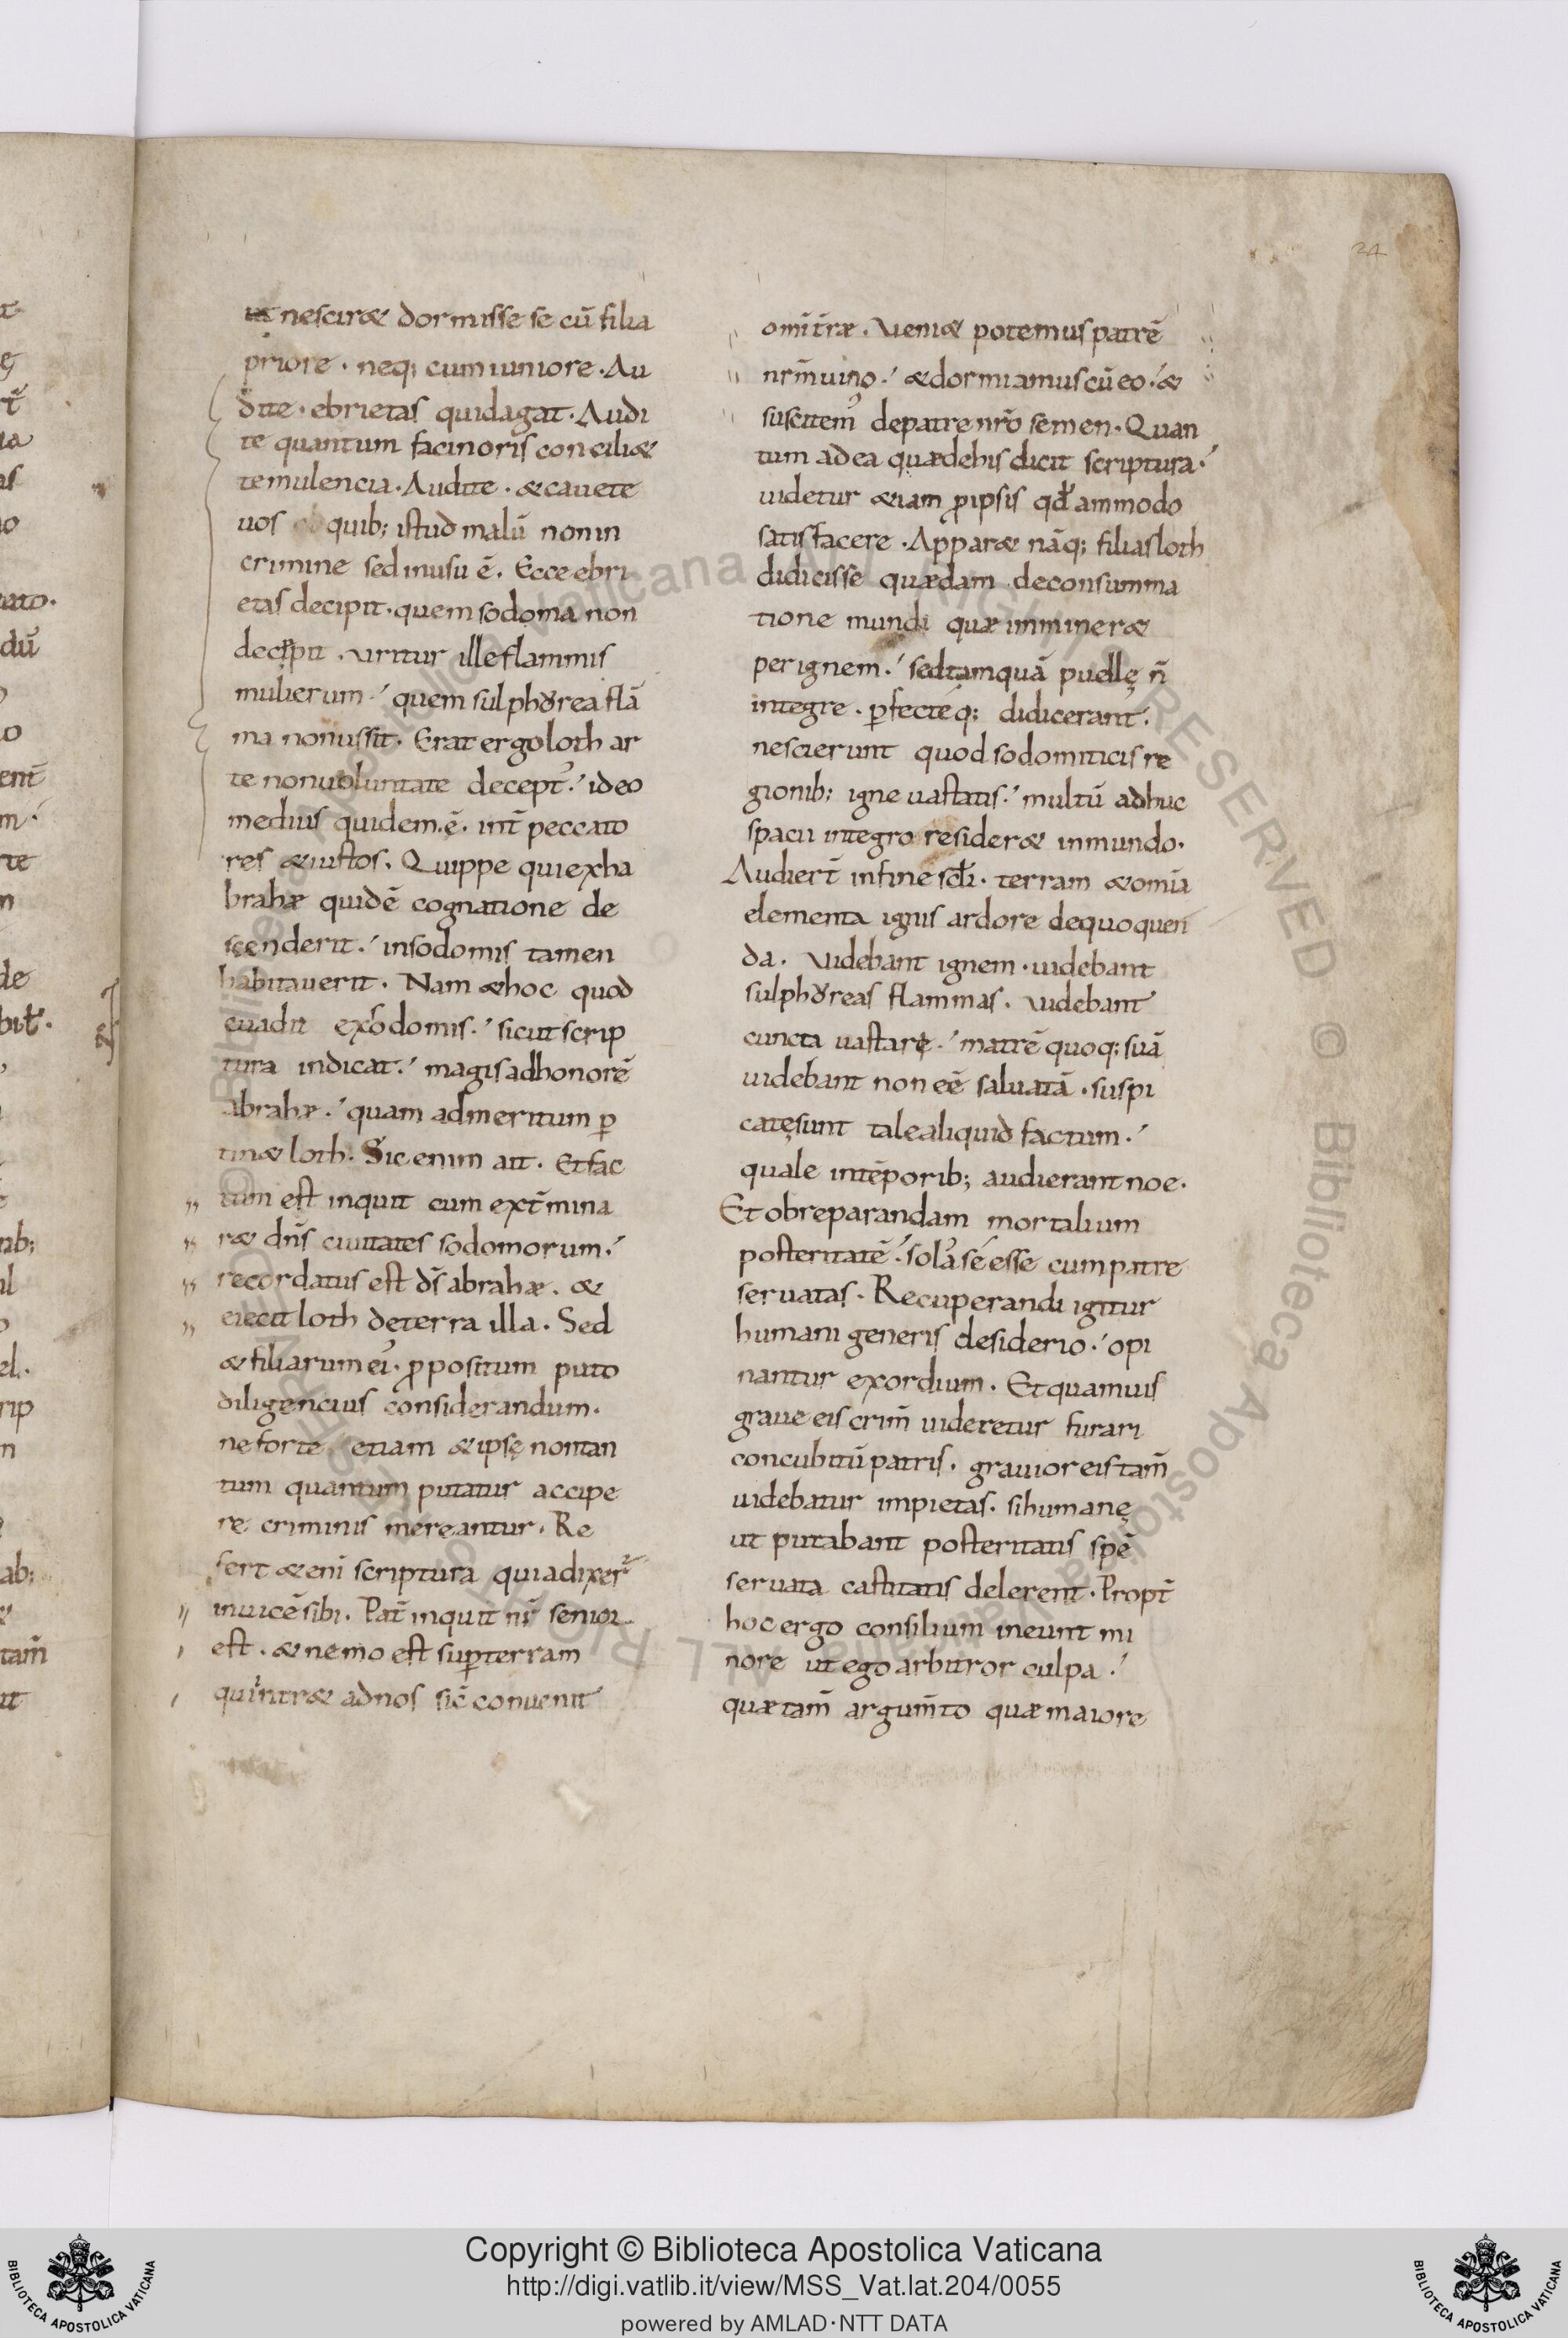 24
ut nesciret dormisse se cū filia
priore · neq; cum iuniore · Au
dite · ebrietas quid agat · Audi
te quantum facinoris conciliet
temulencia · Audite · & cavete
uos quib; istud malū non in
crimine sed in usu ē . Ecce ebri
etas decipit · quem sodoma non
decepit . uritur ille flammis
mulierum · quem sulphurea flā
ma non ussit . Erat ergo loth ar
te non uoluntate decept᾽ · ideo
medius quidem · ē · int̄ peccato
res & iustos . Quippe qui ex ha
brahæ quidē cognatione de
scenderit · in sodomis tamen
habitauerit . Nam & hoc quod
euadit ex sodomis · sicut scrip
tura indicat · magis ad honorē
abrahæ · quam ad meritum ꝑ
tin& loth . Sic enim ait . Et fac
tum est inquit cum ext̄mina
r& dn̄s ciuitates sodomorum ·
recordatus est ds̄ abrahæ . &
eiecit loth de terra illa . Sed
& filiarum ei᾽ · ꝓpositum puto
diligencius considerandum ·
ne forte etiam & ipsę non tan
tum quantum putatur accipe
re criminis mereantur . Re
fert & eni scriptura quia dixer̄
inuicē sibi . Pat̄ inquit nr̄ senior
est . & nemo est suꝑ terram
qui intr& ad nos sic̄ conuenit
omi t̄ræ . Veni& potemus patrē
nrm̄ uino · & dormiamus cū eo · &
suscitem᾽ de patre nrō semen . Quan
tum ad ea quæ de his dicit scriptura ·
uidetur &iam ꝓ ipsis qd̄ammodo
satisfacere . Appar& nāq; filias loth
didicisse quædam de consumma
tione mundi quæ imminer&
per ignem · sed tamquā puellę n̄
integre · ꝑfecteq; didicerant ·
nescierunt quod sodomiticis re
gionib; igne uastatis · multū adhuc
spacii integro resider& in mundo .
Audiert̄ in fine scl̄i · terram & omīa
elementa ignis ardore dequoquen
da . Videbant ignem · uidebant
sulphureas flammas . Videbant
cuncta uastare · matrē quoq; suā
uidebant non eē saluatā . suspi
catę sunt tale aliquid factum ·
quale in tēporib; audierant noe .
Et ob reparandam mortalium
posteritatē · solas se esse cum patre
seruatas . Recuperandi igitur
humani generis desiderio · opi
nantur exordium . Et quamuis
graue eis crim̄ uideretur furari
concubitū patris . grauior eis tam̄
uidebatur impietas . si humanę
ut putabant posteritatis spē
seruata castitatis delerent . Propt̄
hoc ergo consilium ineunt mi
nore ut ego arbitror culpa ·
quæ tam̄ argum̄to quæ maiore
Copyright © Biblioteca Apostolica Vaticana
http://digi.vatlib.it/view/MSS_Vat.lat.204/0055
powered by AMLAD·NTT DATA
BIBLIOTECA APOSTOLICA VATICANA
BIBLIOTECA APOSTOLICA VATICANA